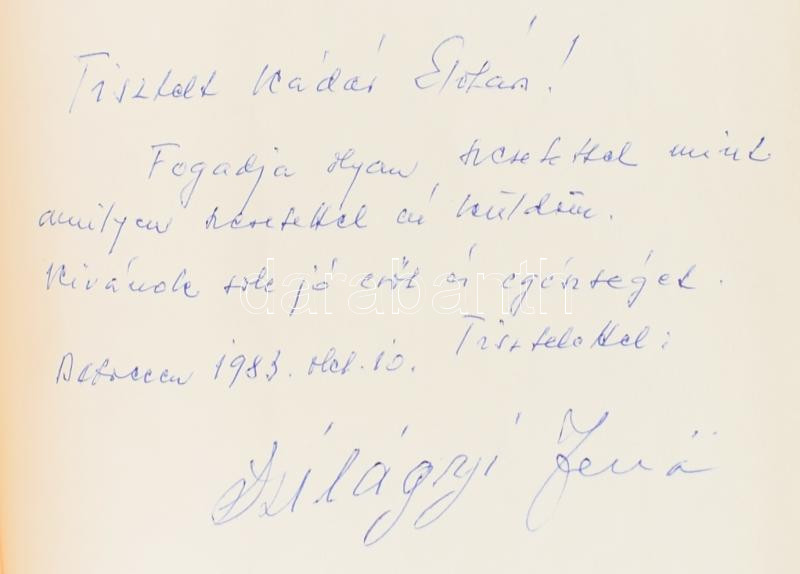 Tisztelt Kádár Elvtárs!
Fogadja olyan szeretettel mint
amilyen szeretettel én küldöm.
Kivánok sok jó erőt és egészséget.
Tisztelettel:
Debrecen 1983. okt. 10.
Szilágyi Jenő
darabanth